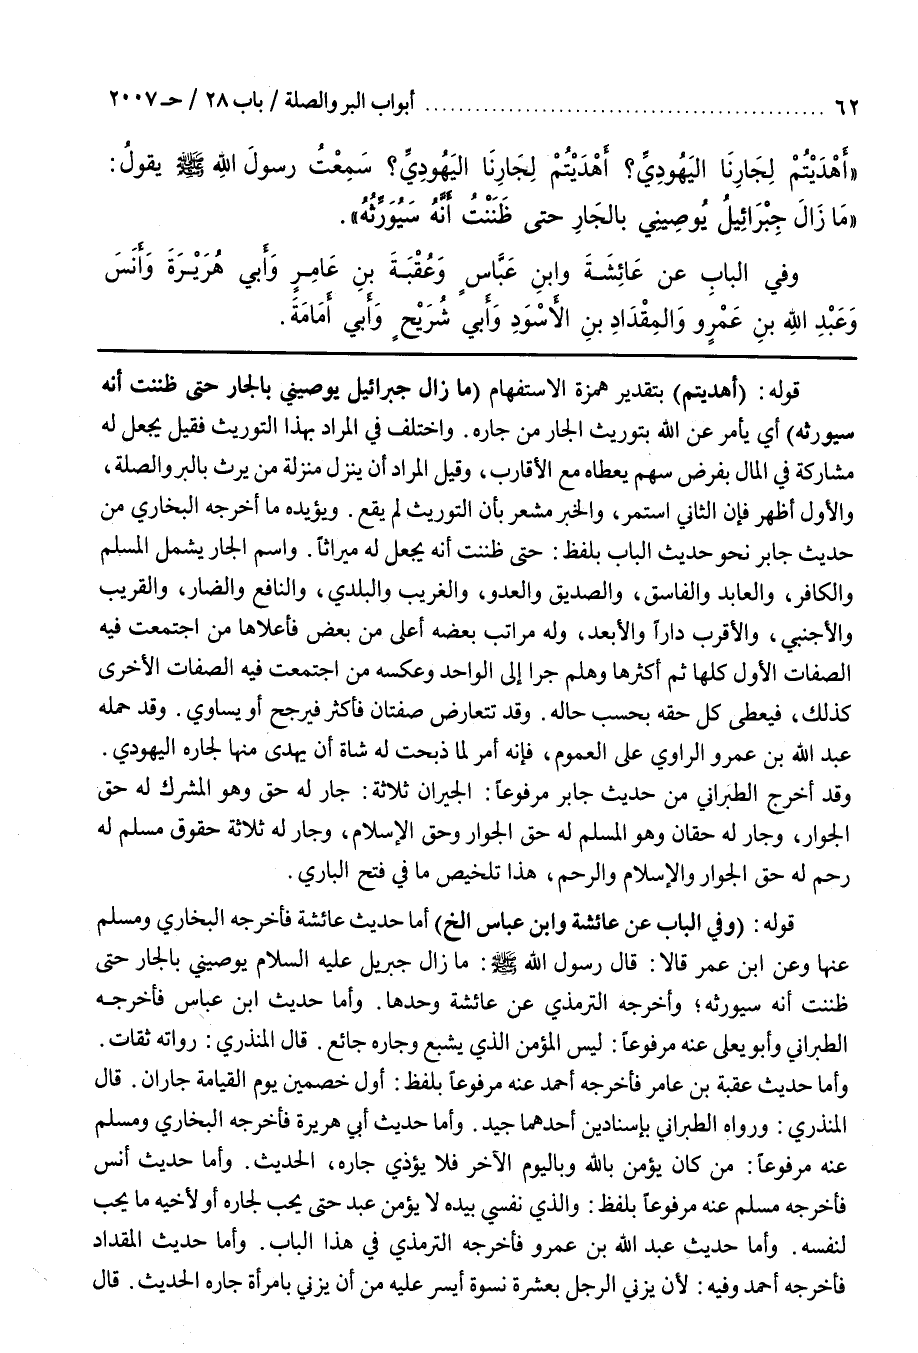 ٦٢ ........................................ أبواب البر والصلة / باب ٢٨ / حـ ٢٠٠٧
«أَهْدَيْتُمْ لِجَارِنَا اليَهُودِيِّ؟ أَهْدَيْتُمْ لِجَارِنَا اليَهُودِيِّ؟ سَمِعْتُ رسولَ اللهِ ﷺ يقولُ:
«مَا زَالَ جِبْرَائِيلُ يُوصِينِي بالجَارِ حتى ظَنَنْتُ أَنَّهُ سَيُوَرِّثُهُ».
وفي البابِ عن عَائِشَةَ وابنِ عَبَّاسٍ وَعُقْبَةَ بنِ عَامِرٍ وَأَبي هُرَيْرَةَ وَأَنَسَ
وَعَبْدِ اللهِ بنِ عَمْرٍو وَالمِقْدَادِ بنِ الأَسْوَدِ وَأَبي شُرَيْحٍ وَأَبي أُمَامَةَ.
قوله: (أهديتم) بتقدير همزة الاستفهام (ما زال جبرائيل يوصيني بالجار حتى ظننت أنه
سيورثه) أي يأمر عن الله بتوريث الجار من جاره. واختلف في المراد بهذا التوريث فقيل يجعل له
مشاركة في المال بفرض سهم يعطاه مع الأقارب، وقيل المراد أن ينزل منزلة من يرث بالبر والصلة،
والأول أظهر فإن الثاني استمر، والخبر مشعر بأن التوريث لم يقع. ويؤيده ما أخرجه البخاري من
حديث جابر نحو حديث الباب بلفظ: حتى ظننت أنه يجعل له ميراثاً. واسم الجار يشمل المسلم
والكافر، والعابد والفاسق، والصديق والعدو، والغريب والبلدي، والنافع والضار، والقريب
والأجنبي، والأقرب داراً والأبعد، وله مراتب بعضه أعلى من بعض فأعلاها من اجتمعت فيه
الصفات الأول كلها ثم أكثرها وهلم جرا إلى الواحد وعكسه من اجتمعت فيه الصفات الأخرى
كذلك، فيعطى كل حقه بحسب حاله. وقد تتعارض صفتان فأكثر فيرجح أو يساوي. وقد حمله
عبد الله بن عمرو الراوي على العموم، فإنه أمر لما ذبحت له شاة أن يهدى منها لجاره اليهودي.
وقد أخرج الطبراني من حديث جابر مرفوعاً: الجيران ثلاثة: جار له حق وهو المشرك له حق
الجوار، وجار له حقان وهو المسلم له حق الجوار وحق الإسلام، وجار له ثلاثة حقوق مسلم له
رحم له حق الجوار والإسلام والرحم، هذا تلخيص ما في فتح الباري.
قوله: (وفي الباب عن عائشة وابن عباس الخ) أما حديث عائشة فأخرجه البخاري ومسلم
عنها وعن ابن عمر قالا: قال رسول الله ﷺ: ما زال جبريل عليه السلام يوصيني بالجار حتى
ظننت أنه سيورثه؛ وأخرجه الترمذي عن عائشة وحدها. وأما حديث ابن عباس فأخرجه
الطبراني وأبو يعلى عنه مرفوعاً: ليس المؤمن الذي يشبع وجاره جائع. قال المنذري: رواته ثقات.
وأما حديث عقبة بن عامر فأخرجه أحمد عنه مرفوعاً بلفظ: أول خصمين يوم القيامة جاران. قال
المنذري: ورواه الطبراني بإسنادين أحدهما جيد. وأما حديث أبي هريرة فأخرجه البخاري ومسلم
عنه مرفوعاً: من كان يؤمن بالله وباليوم الآخر فلا يؤذي جاره، الحديث. وأما حديث أنس
فأخرجه مسلم عنه مرفوعاً بلفظ: والذي نفسي بيده لا يؤمن عبد حتى يحب لجاره أو لأخيه ما يحب
لنفسه. وأما حديث عبد الله بن عمرو فأخرجه الترمذي في هذا الباب. وأما حديث المقداد
فأخرجه أحمد وفيه: لأن يزني الرجل بعشرة نسوة أيسر عليه من أن يزني بامرأة جاره الحديث. قال